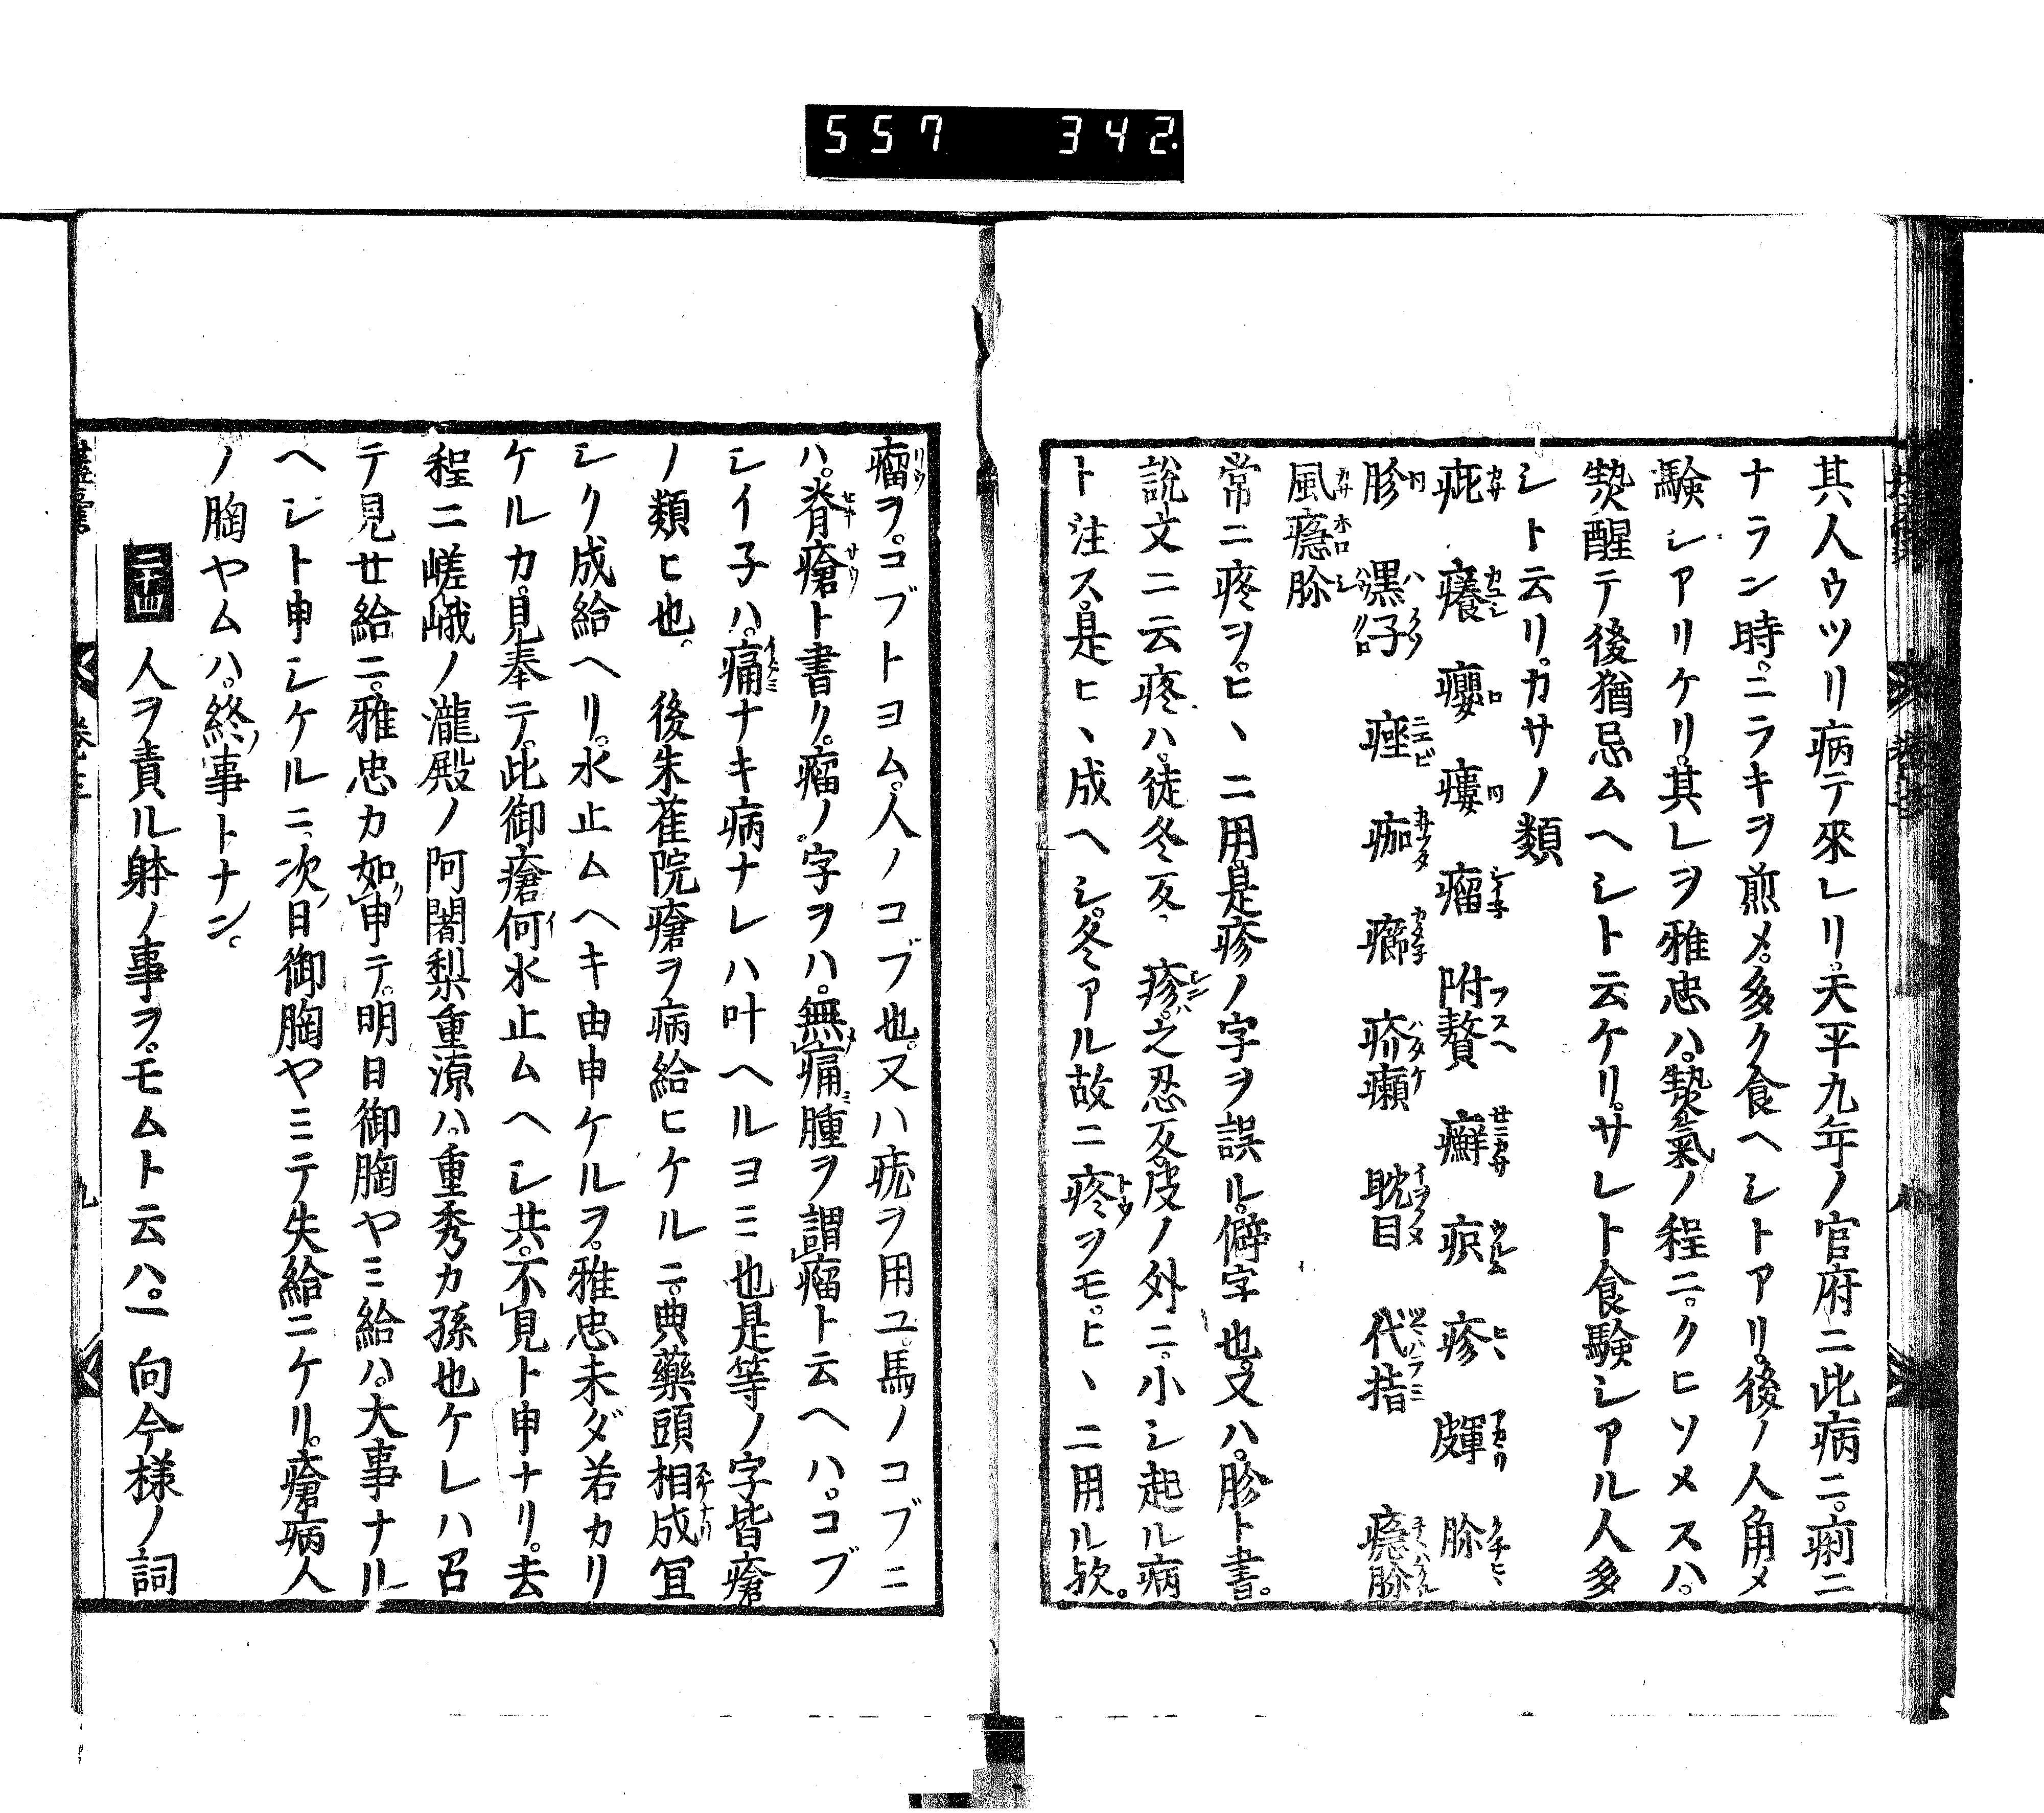 557 342
其人ウツリ病テ來レリ。天平九年ノ官府ニ此病ニ。痢ニ
ナラン時。ニラキヲ煎メ。多ク食ヘシトアリ。後ノ人角メ
驗シアリケリ。其レヲ雅忠ハ。熱氣ノ程ニ。クヒソメスハ。
熱醒テ後猶忌ムヘシト云ケリ。サレト食驗シアル人多
シト云リ。カサノ類
疵 癢 癭 瘻 瘤 附贅 癬 疹 皹 胗
胗 黑子 痤 痂 癤 疥癩 眈目 代指 癮胗
風癮胗
常ニ疼ヲ。ヒヽニ用。是疹ノ字ヲ誤ル。僻字也。又ハ。胗ト書。
説文ニ云疼ハ。徒冬反。疹ハ。之忍反。皮ノ外ニ。小シ起ル病
ト注ス。是ヒヽ成ヘシ。冬アル故ニ疼ヲモ。ヒヽニ用ル歟。
瘤ヲ。コブトヨム。人ノコブ也。又ハ疣ヲ用ユ。馬ノコブニ
ハ。脊瘡ト書ク。瘤ノ字ヲハ。無痛腫ヲ謂瘤ト云ヘハ。コブ
シイ子ハ。痛ナキ病ナレハ叶ヘルヨミ也是等ノ字皆瘡
ノ類ヒ也。 後朱雀院瘡ヲ病給ヒケルニ。典藥頭相成冝
シク成給ヘリ。水止ムヘキ由申ケルヲ。雅忠未ダ若カリ
ケルカ。見奉テ。此御瘡何水止ムヘシ共。不見ト申ナリ。去
程ニ嵯峨ノ瀧殿ノ阿闍梨重源ハ。重秀カ孫也ケレハ召
テ見せ給ニ。雅忠カ如申テ。明日御胸ヤミ給ハ。大事ナル
ヘシト申シケルニ。次日御胸ヤミテ失給ニケリ。瘡病人
ノ胸ヤムハ。終事トナン。
二十四 人ヲ責ル躰ノ事ヲ。モムト云ハ。一向今様ノ詞
九